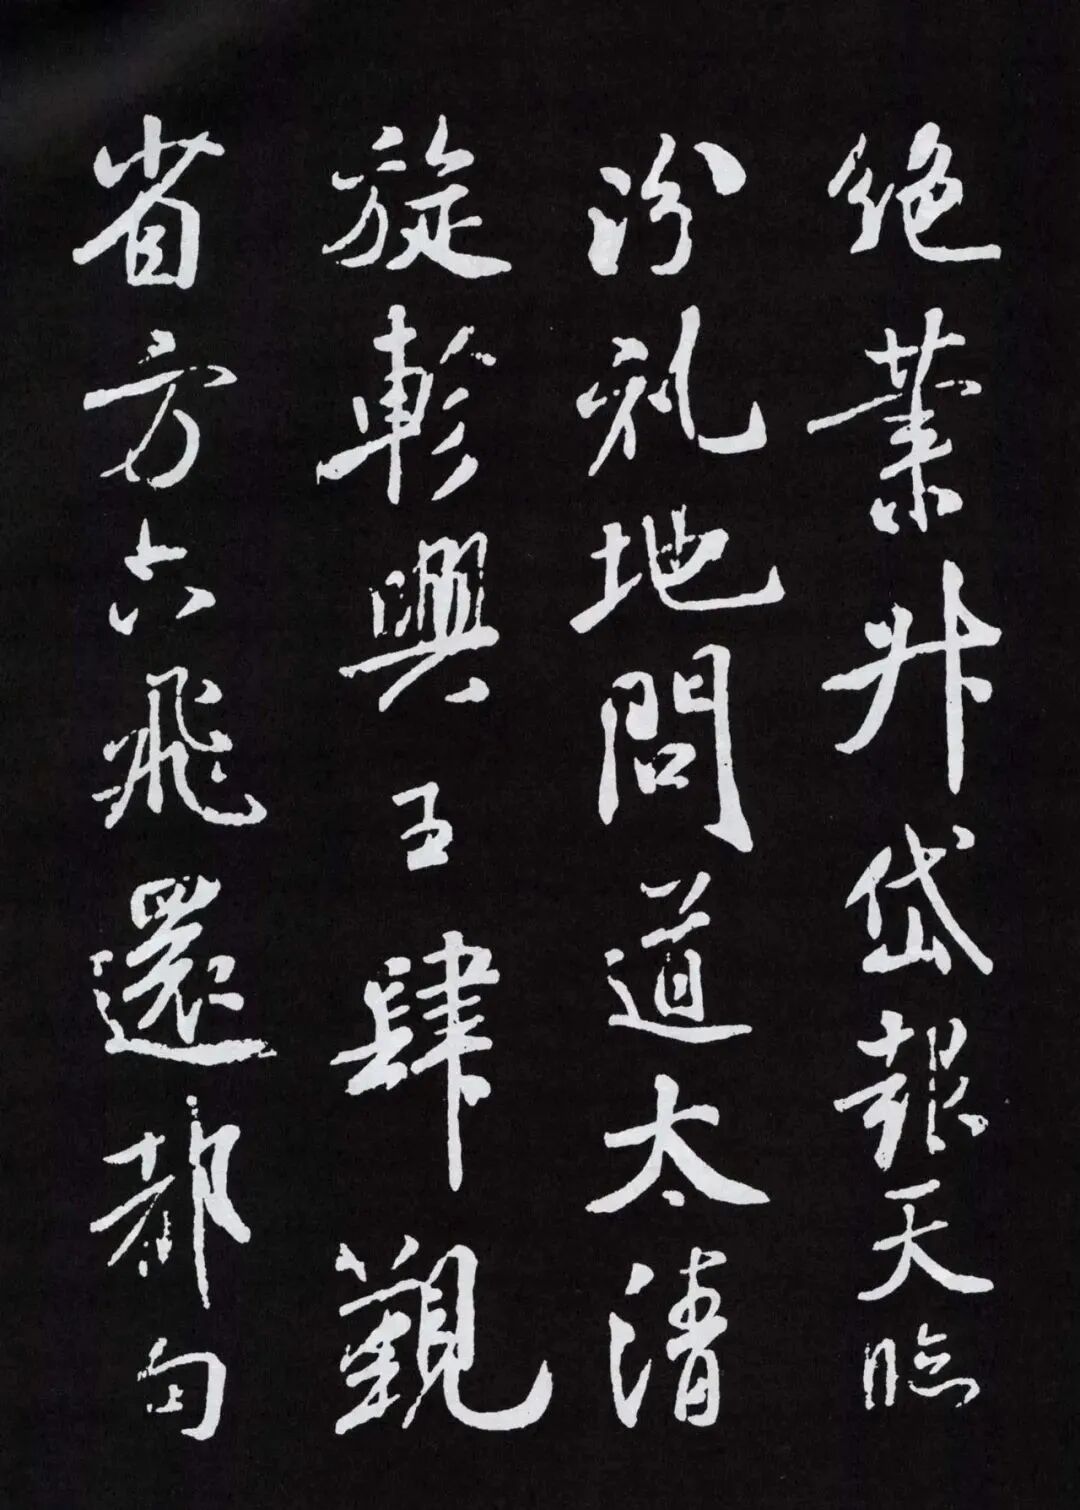 絶業升岱報天臨
汾礼地問道太清
旋軫興王肆覲
省方六飛還都勾